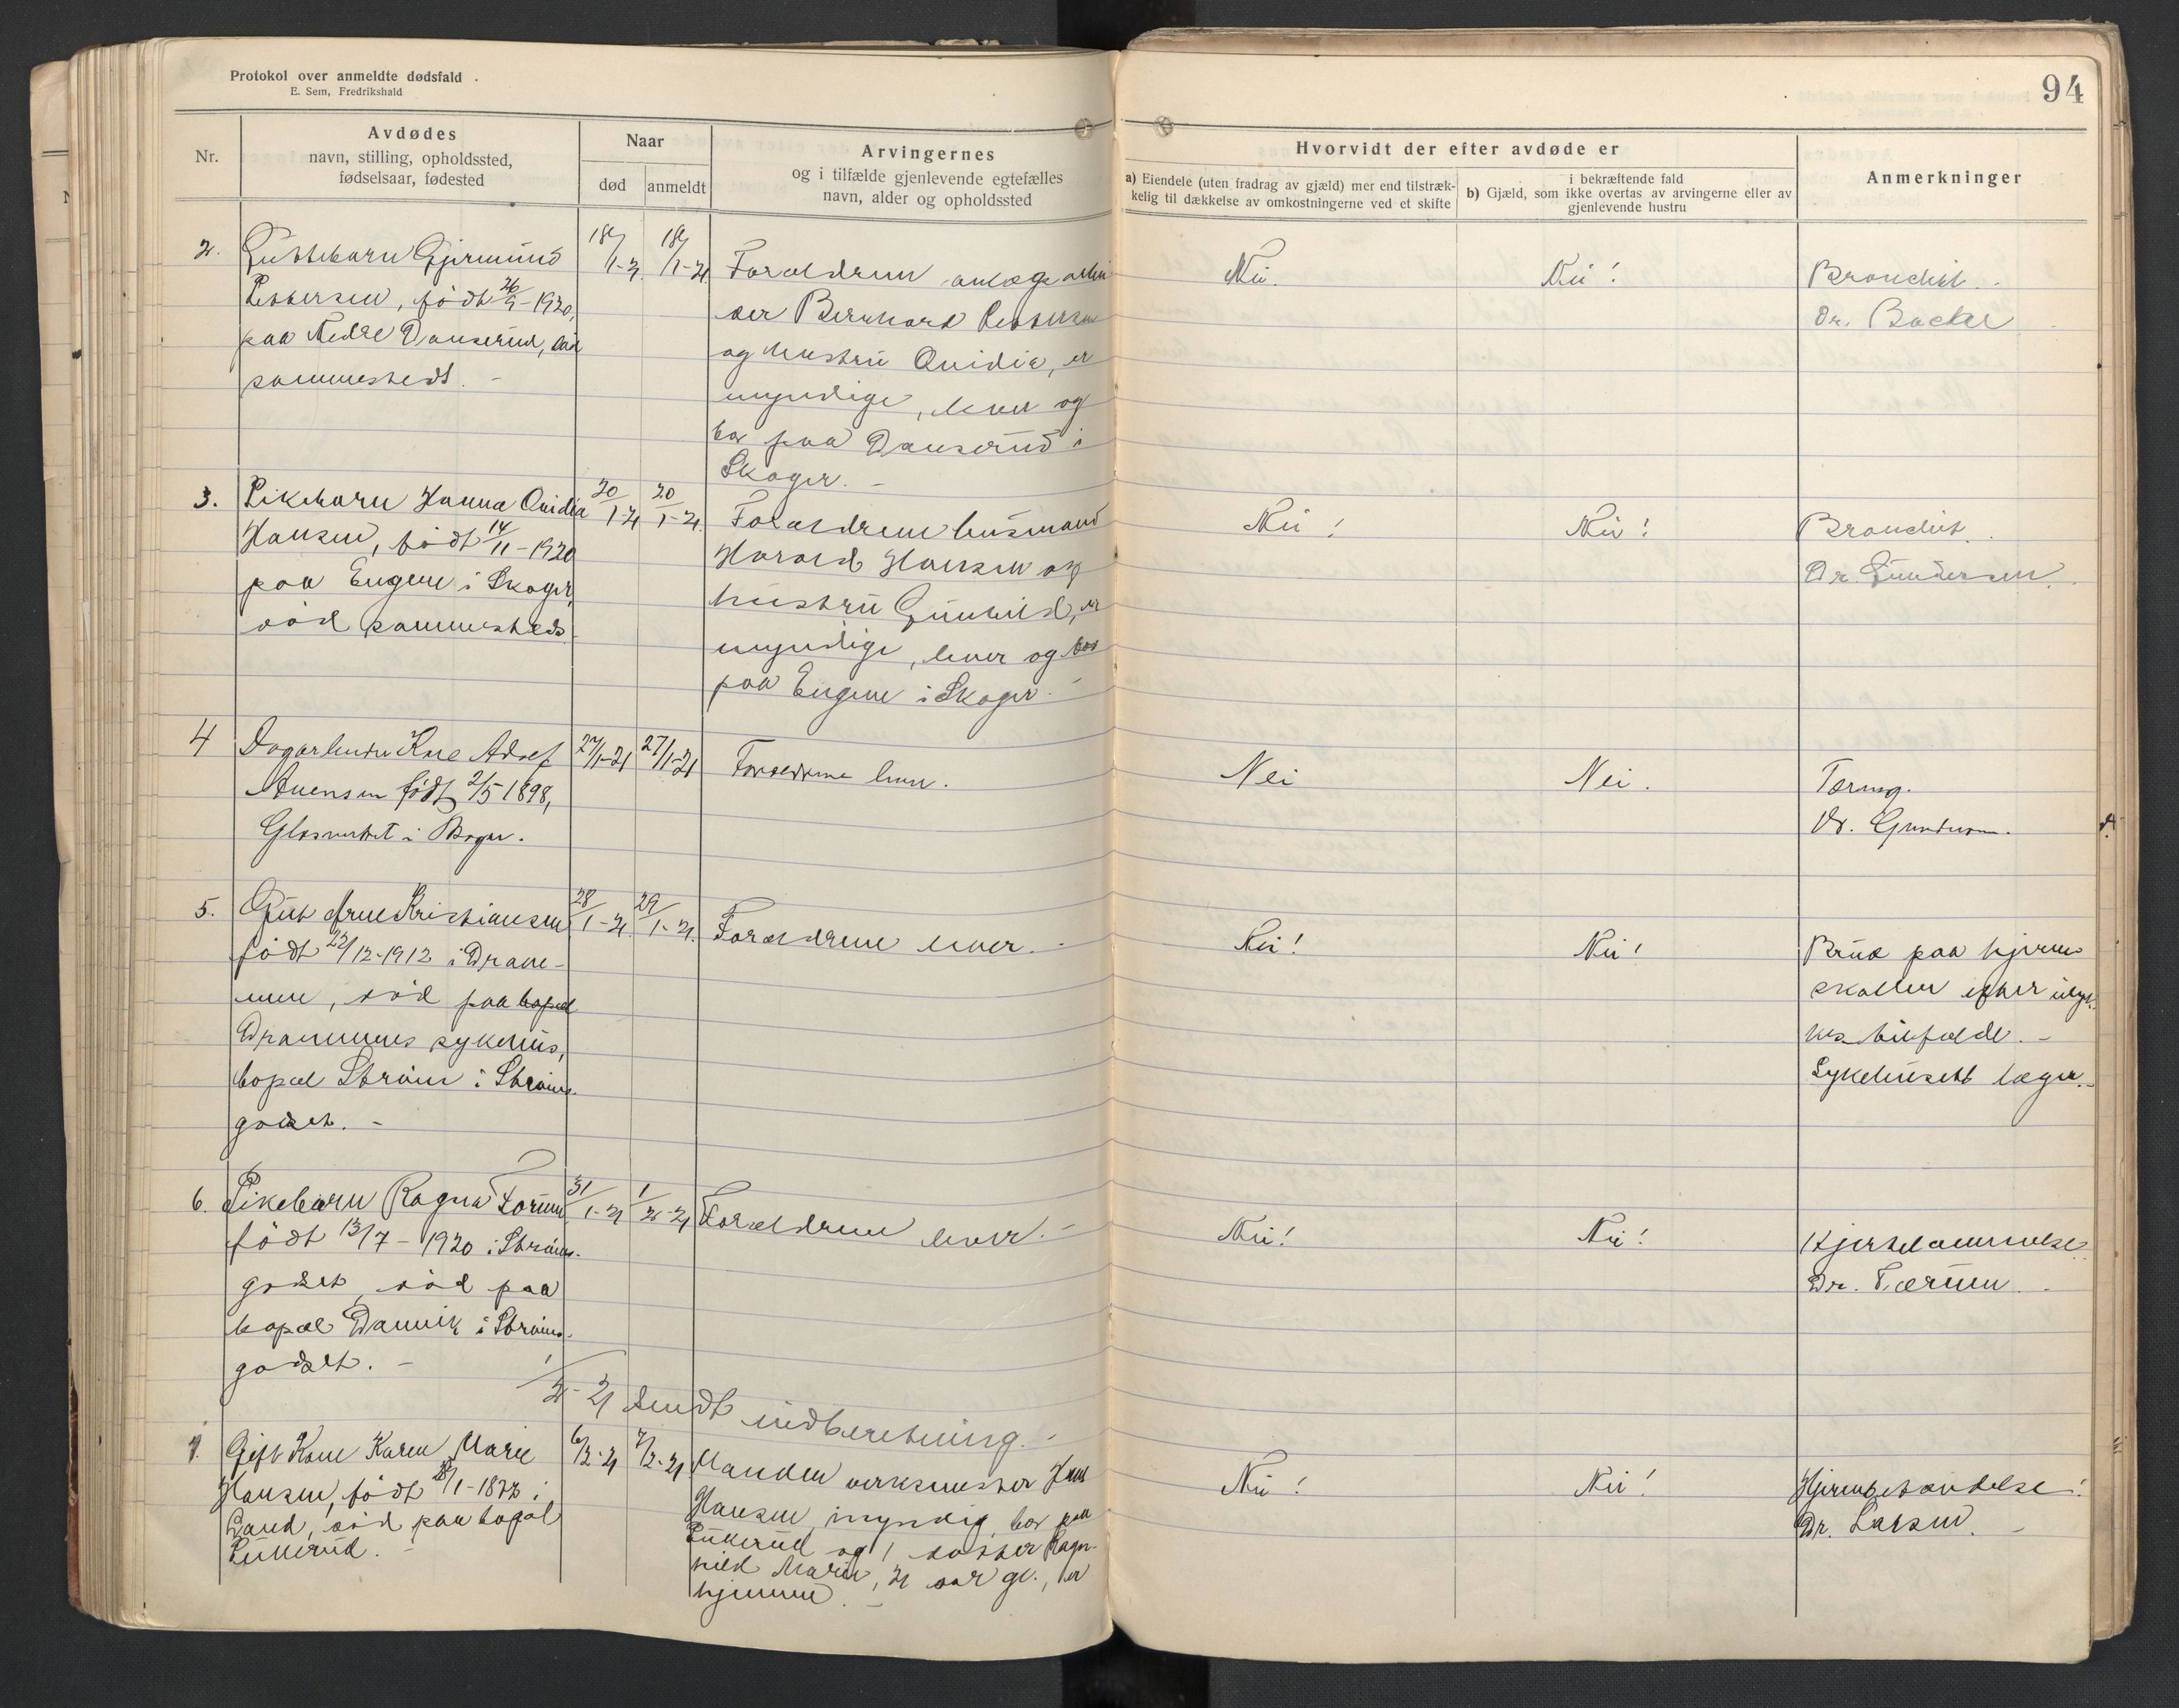 Protokol over anmeldte dødsfald
E. Sem, Fredrikshald
94
Nr.
Avdødes
navn, stilling, opholdssted,
fødselsaar, fødested
Naar
død
anmeldt
Arvingernes
og i tilfælde gjenlevende egtefælles
navn, alder og opholdssted
Hvorvidt der efter avdøde er
a) Eiendele (uten fradrag av gjæld) mer end tilstræk-
kelig til dækkelse av omkostningerne ved et skifte
i bekræftende fald
b) Gjæld, som ikke overtas av arvingerne eller av
gjenlevende hustru
Anmerkninger
2.
Guttebarn Gjermund
Pettersen, født 26/9-1920,
paa Nedre Danserud, død
sammesteds. -
18/1-21
18/1-21
Forældrene anlægsarbei
der Bernhard Pettersen
og hustru Ovidia, er
myndige, lever og
bor paa Danserud i
Skoger. -
Nei.
Nei!
Bronchit.
Dr. Backer
3.
Pikebarn Hanna Ovidia
Hansen, født 14/11-1920
paa Engene i Skoger,
død sammesteds.
20/1-21
20/1-21.
Forældrene husmand
Harald Hansen og
hustru Gunhild, er
myndige, lever og bor
paa Engene i Skoger. -
Nei!
Nei!
Bronchit.
Dr. Gundersen.
4
Dagarbeider Kaare Adolf
Svensen født 2/5 1898,
Glasverket i Skoger.
27/1-21
27/1-21
Forældrene lever.
Nei
Nei.
Tæring.
Dr. Gundersen.
5.
Gut Arne Kristiansen
født 22/12-1912 i Dram-
men, død paa bopæl
Drammens sykehus,
bopæl Strøm i Strøms-
godset. -
28/1-21.
29/1-21.
Forældrene lever. -
Nei!
Nei!
Brud paa hjerne
skallen efter ulyk-
kes tilfælde. -
Sykehusets læger. -
6.
Pikebarn Ragna Torum
født 13/7-1920 i Strøms-
godset, død paa
bopæl Danvik i Strøms-
godset. -
31/1-21
1/2-21
Forældrene lever. -
Nei!
Nei!
Kjertelammelse
Dr. Tærum.
1/2-21 sendt indberetning. -
7.
Gift Kone Karen Marie
Hansen, født /1-1872 i
Sand, død paa bopæl
6/2-21
7/2-21
Manden verksmester
Hansen, myndig, bor paa
og 1 datter Ragn-
hild Marie, 21 aar gl., er
hjemme. -
Nei!
Nei!
Hjernebetændelse!
Dr. Larsen. -